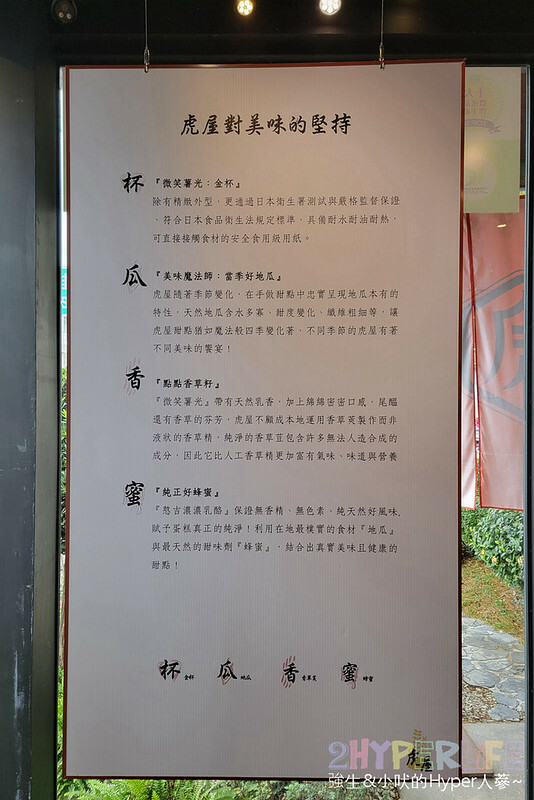 虎屋對美味的堅持
杯
『微笑薯光：金杯』
除有精緻外型，更通過日本衛生署測試與嚴格監督保證
，符合日本食品衛生法規定標準，具備耐水耐油耐熱，
可直接接觸食材的安全食用級用紙。
瓜
『美味魔法師：當季好地瓜』
虎屋隨著季節變化，在手做甜點中忠實呈現地瓜本有的
特性，天然地瓜含水多寡、甜度變化、纖維粗細等，讓
虎屋甜點猶如魔法般四季變化著，不同季節的虎屋有著
不同美味的饗宴！
香
『點點香草籽』
『微笑薯光』帶有天然乳香，加上綿綿密密口感，尾韻
還有香草的芬芳，虎屋不顧成本地運用香草莢製作而非
液狀的香草精，純淨的香草荳包含許多無法人造合成的
成分，因此它比人工香草精更加富有氣味、味道與營養
蜜
『純正好蜂蜜』
『憨吉濃濃乳酪』保證無香精、無色素、純天然好風味，
賦予蛋糕真正的純淨！利用在地最樸實的食材『地瓜』
與最天然的甜味劑『蜂蜜』，結合出真實美味且健康的
甜點！
杯 金杯 瓜 地瓜 香 香草莢 蜜 蜂蜜
虎屋
2HYPERLIFE
強生&小吠的Hyper人蔘~